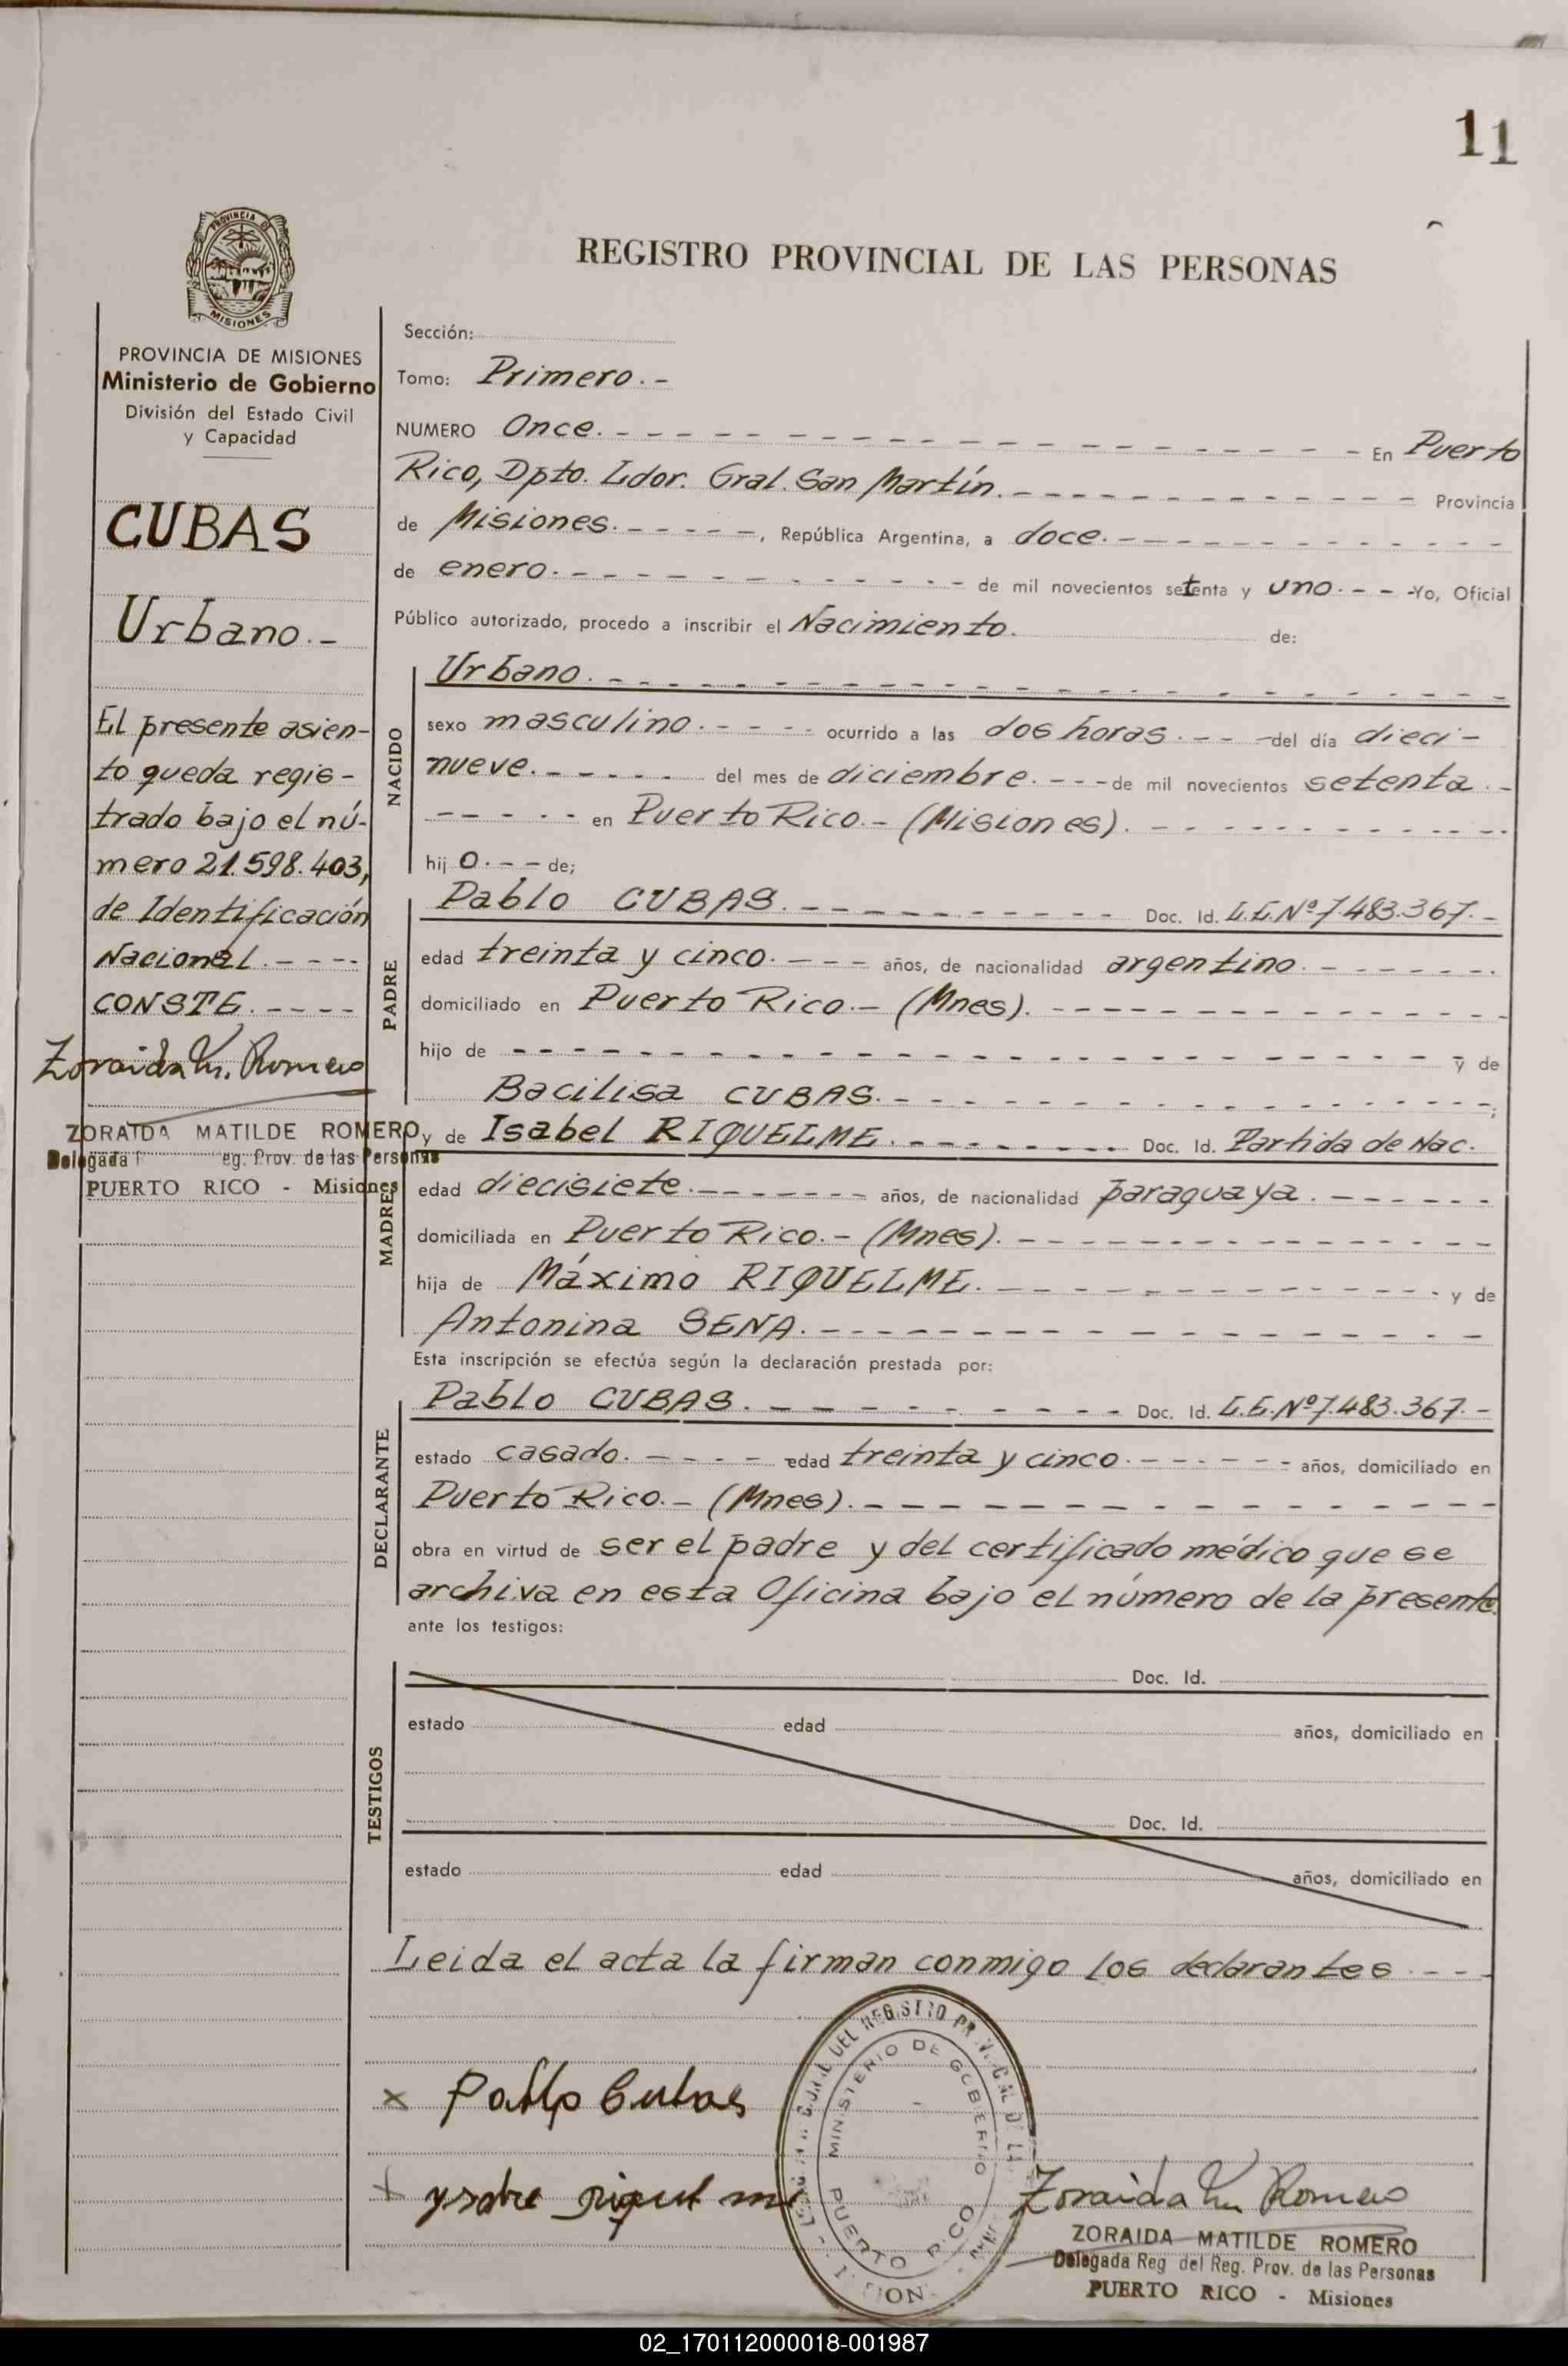 11
REGISTRO PROVINCIAL DE LAS PERSONAS
PROVINCIA DE
MISIONES
PROVINCIA DE MISIONES
Ministerio de Gobierno
División del Estado Civil
y Capacidad
CUBAS
Urbano.-
El presente asien-
to queda regis-
trado bajo el nú-
mero 21.598.403,
de Identificación
Nacional.----
CONSTE.----
Zoraida M. Romero
ZORAIDA MATILDE ROMERO
Delegada eg. Prov. de las Personas
PUERTO RICO - Misiones
Sección:
Tomo: Primero.-
NUMERO Once.- En Puerto
Rico, Dpto. Ldor. Gral. San Martín.- Provincia
de Misiones.-, República Argentina, a doce.-
de enero.- de mil novecientos setenta y uno.- -Yo, Oficial
Público autorizado, procedo a inscribir el Nacimiento. de:
NACIDO
Urbano.-
sexo masculino.- ocurrido a las dos horas.- del día dieci-
nueve.- del mes de diciembre.- de mil novecientos setenta.-
- en Puerto Rico.- (Misiones).-
hij o.- de;
PADRE
Pablo CUBAS.- Doc. Id. L.E.Nº7.483.367.-
edad treinta y cinco.- años, de nacionalidad argentino.-
domiciliado en Puerto Rico.- (Mnes).-
hijo de - y de
Bacilisa CUBAS.- ;
MADRE
y de Isabel RIQUELME.- Doc. Id. Partida de Nac.
edad diecisiete.- años, de nacionalidad paraguaya.-
domiciliada en Puerto Rico.- (Mnes).-
hija de Máximo RIQUELME.- y de
Antonina SENA.-
Esta inscripción se efectúa según la declaración prestada por:
DECLARANTE
Pablo CUBAS.- Doc. Id. L.E.Nº7.483.367.-
estado casado.- edad treinta y cinco.- años, domiciliado en
Puerto Rico.- (Mnes).-
obra en virtud de ser el padre y del certificado médico que se
archiva en esta Oficina bajo el número de la presente.
ante los testigos:
TESTIGOS
Doc. Id.
estado edad años, domiciliado en
Doc. Id.
estado edad años, domiciliado en
Leida el acta la firman conmigo los declarantes.---
x Pablo Cubas
x
MINISTERIO DE GOBIERNO
PUERTO RICO
Zoraida M. Romero
ZORAIDA MATILDE ROMERO
Delegada Reg del Reg. Prov. de las Personas
PUERTO RICO - Misiones
02_170112000018-001987